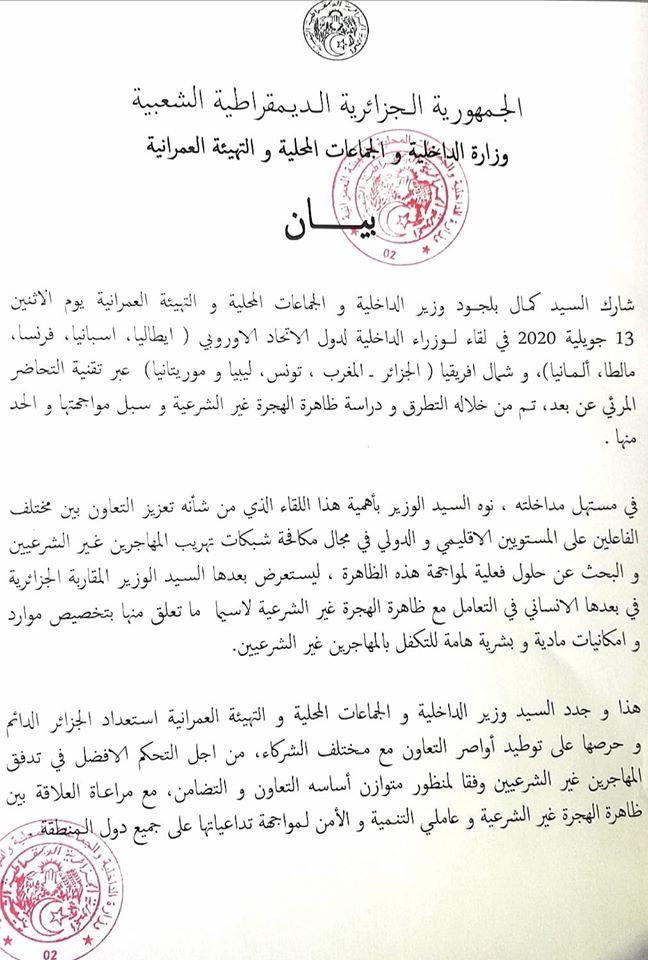 الجمهورية الجزائرية الديمقراطية الشعبية
وزارة الداخلية و الجماعات المحلية و التهيئة العمرانية
بيـــــان
02
شارك السيد كمال بلجود وزير الداخلية و الجماعات المحلية و التهيئة العمرانية يوم الاثنين
13 جويلية 2020 في لقاء لـوزراء الداخلية لدول الاتحاد الاوروبي ( ايطاليا، اسبانيا، فرنسا،
مالطا، ألمانيا)، و شمال افريقيا ( الجزائر ـ المغرب ، تونس، ليبيا و موريتانيا) عبر تقنية التحاضر
المرئي عن بعد، تم من خلاله التطرق و دراسة ظاهرة الهجرة غير الشرعية و سبل مواجهتها و الحد
منها .
في مستهل مداخلته ، نوه السيد الوزير بأهمية هذا اللقاء الذي من شأنه تعزيز التعاون بين مختلف
الفاعلين على المستويين الاقليمي و الدولي في مجال مكافحة شبكات تهريب المهاجرين غير الشرعيين
و البحث عن حلول فعلية لمواجهة هذه الظاهرة ، ليستعرض بعدها السيد الوزير المقاربة الجزائرية
في بعدها الانساني في التعامل مع ظاهرة الهجرة غير الشرعية لاسيما ما تعلق منها بتخصيص موارد
و امكانيات مادية و بشرية هامة للتكفل بالمهاجرين غير الشرعيين.
هذا و جدد السيد وزير الداخلية و الجماعات المحلية و التهيئة العمرانية استعداد الجزائر الدائم
و حرصها على توطيد أواصر التعاون مع مختلف الشركاء، من اجل التحكم الافضل في تدفق
المهاجرين غير الشرعيين وفقا لمنظور متوازن أساسه التعاون و التضامن، مع مراعاة العلاقة بين
ظاهرة الهجرة غير الشرعية و عاملي التنمية و الأمن لمواجهة تداعياتها على جميع دول المنطقة
02